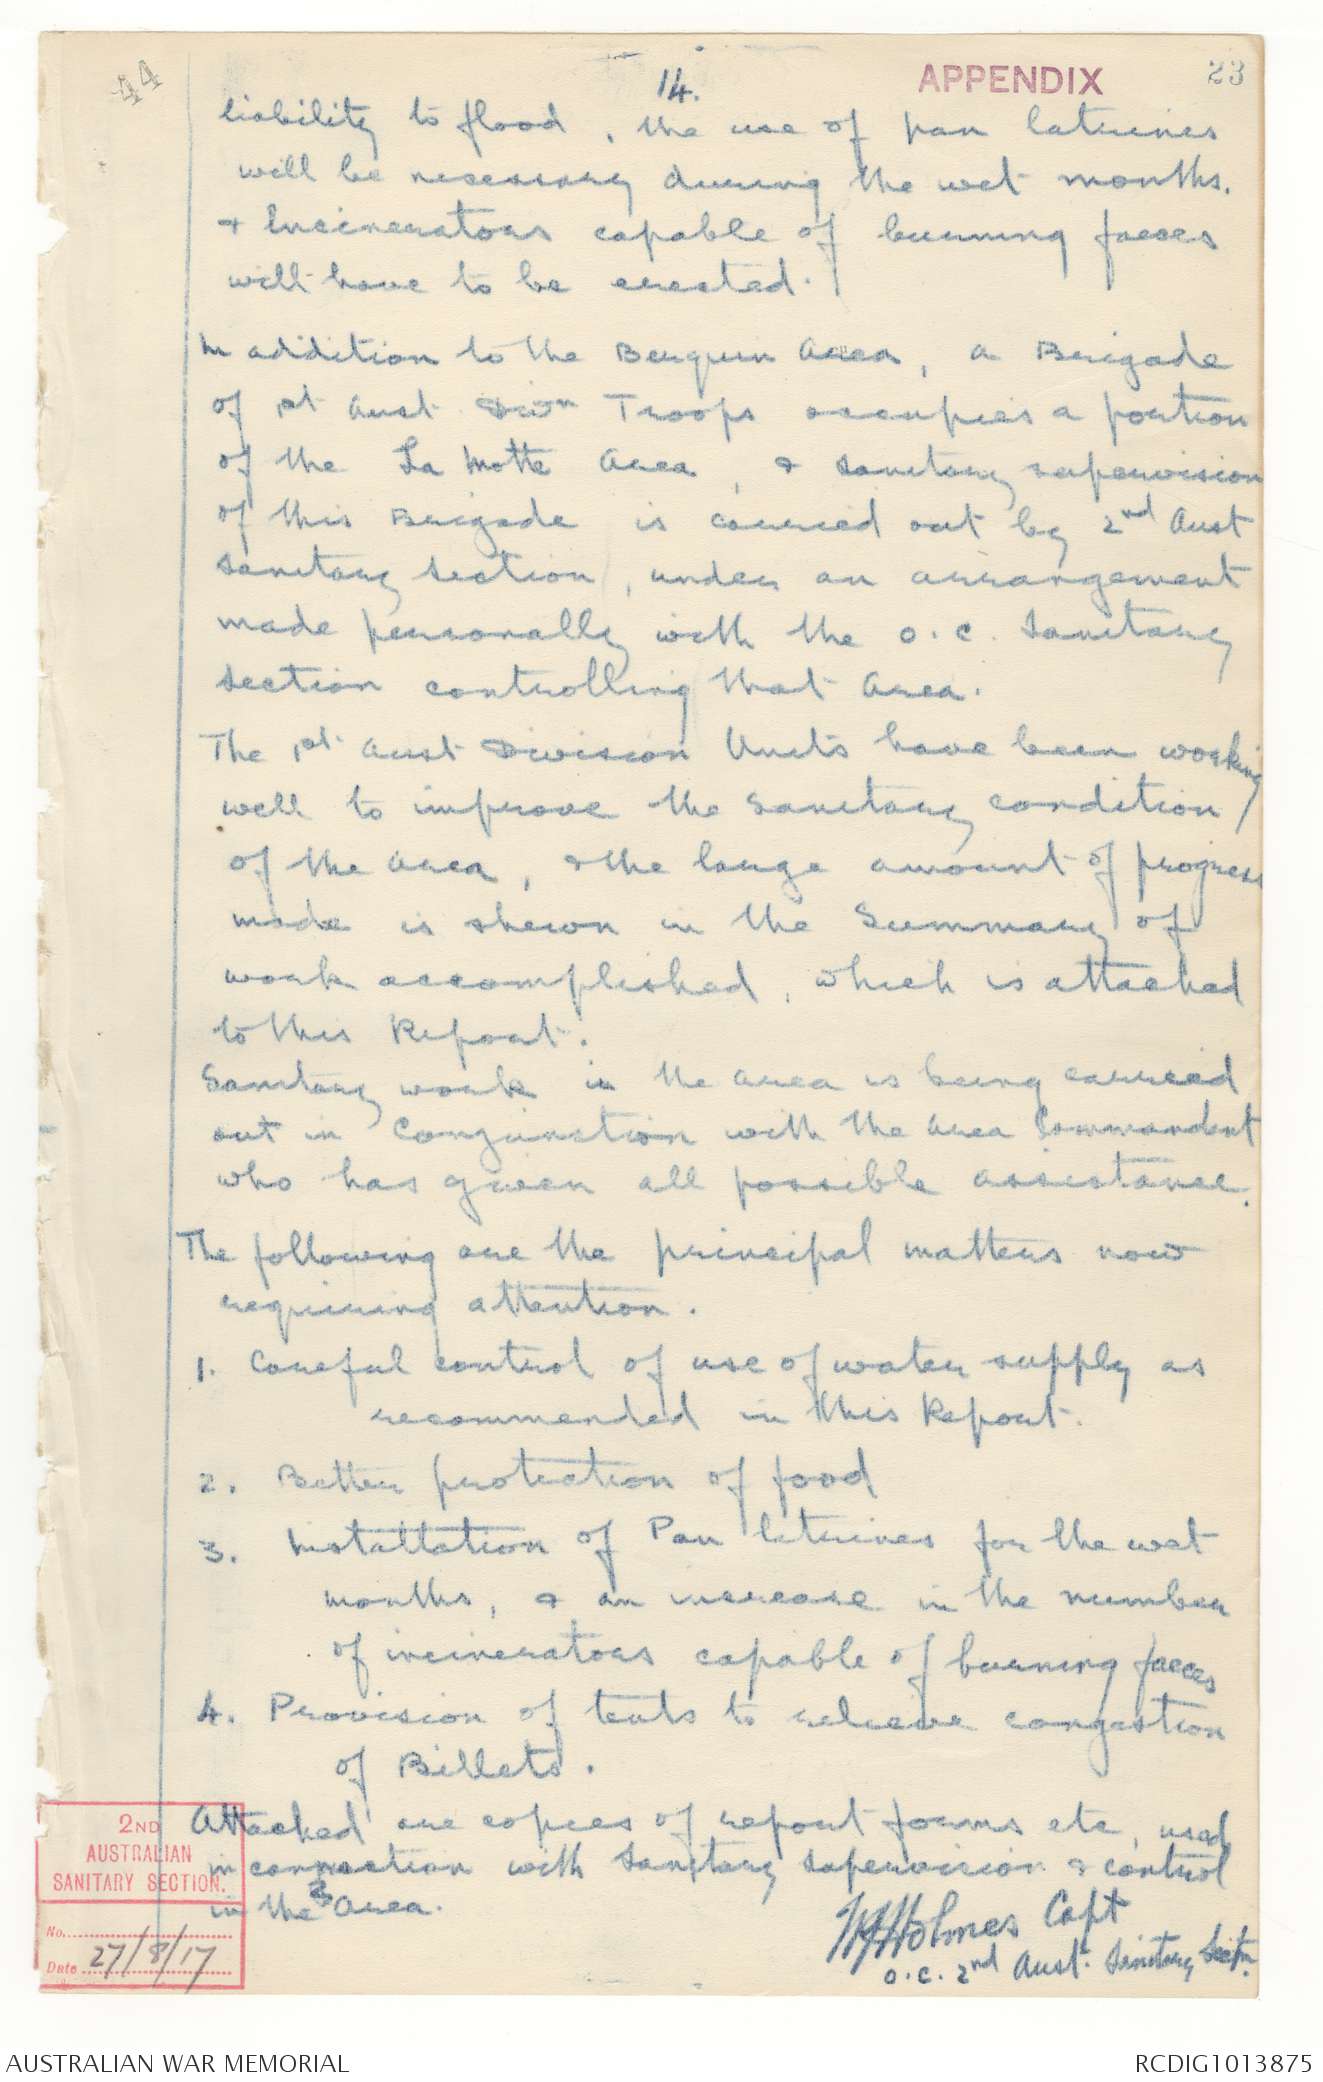 44
14.
APPENDIX
23
liability to flood, the use of pan latrines
will be necessary during the wet months.
+ Incinerators capable of burning faeces
will have to be erected.
In addition to the Berquin Area, a Brigade
of 1st Aust Divn Troops occupies a portion
of the La Motte Area, & sanitary supervision
of this Brigade is carried out by 2nd Aust
Sanitary Section, under an arrangement
made personally with the O.C. Sanitary
Section controlling that Area.
The 1st Aust Division Units have been working
well to improve the sanitary condition
of the Area, & the large amount of progress
made is shewn in the Summary of
work accomplished, which is attached
to this Report.
Sanitary work in the area is being carried
out in Conjunction with the Area Commandant
who has given all possible assistance.
The following are the principal matters now
requiring attention.
1. Careful control of use of water supply as
recommended in this Report.
2. Better protection of food
3. Installation of Pan latrines for the wet
months, & an increase in the number
of incinerators capable of burning faeces
4. Provision of tents to relieve congestion
of Billets.
Attached are copies of report forms etc, used
in connection with Sanitary Supervision & control
in the Area.
Holmes Capt
O.C. 2nd Aust. Sanitary Sectn.
2ND
AUSTRALIAN
SANITARY SECTION.
No.
Date 27/8/17
AUSTRALIAN WAR MEMORIAL
RCDIG1013875